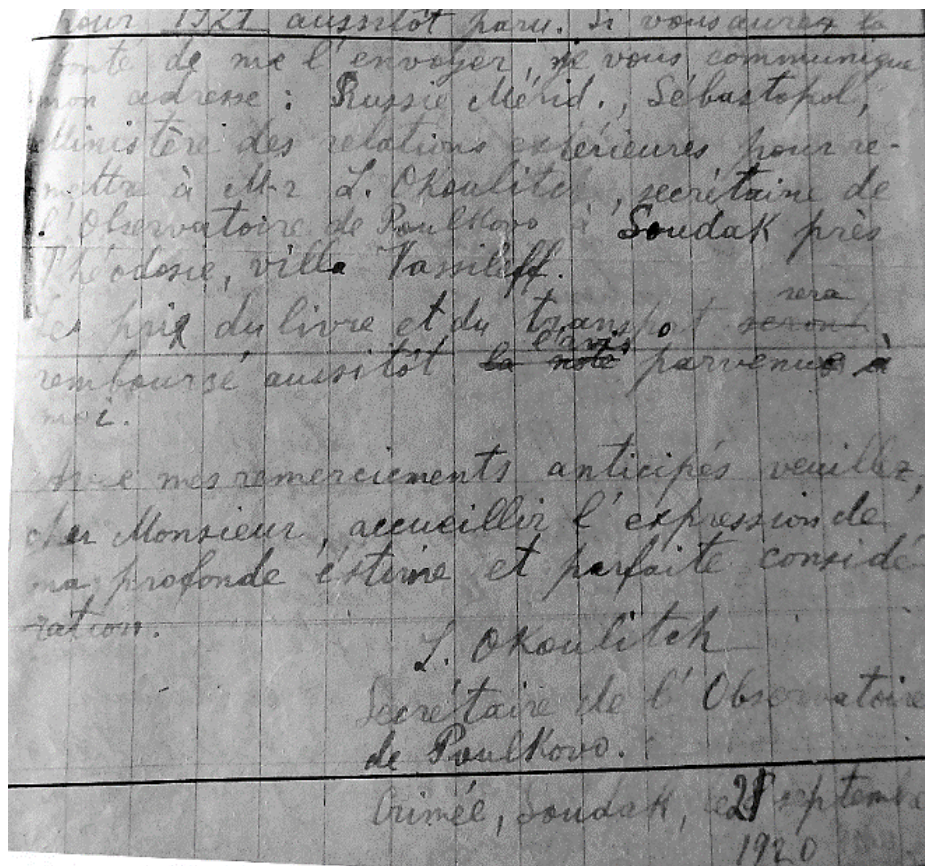 pour 1921 aussitôt paru. Si vous aurez la
bonté de me l'envoyer, je vous communique
mon adresse : Russie Mérid., Sébastopol,
Ministère des relations extérieures pour re-
mettre à M-r L. Okoulitch, secrétaire de
l'Observatoire de Poulkovo à Soudak près
Théodosie, villa Vassilieff.
sera
Les prix du livre et du transport seront
l'avis
remboursé aussitôt la note parvenue à
moi.
Avec mes remerciements anticipés veuillez,
cher Monsieur, accueillir l'expression de
ma profonde éstime et parfaite considé
ration.
L. Okoulitch
Secrétaire de l'Observatoire
de Poulkovo.
Crimée, Soudak, le 21 septembre
1920